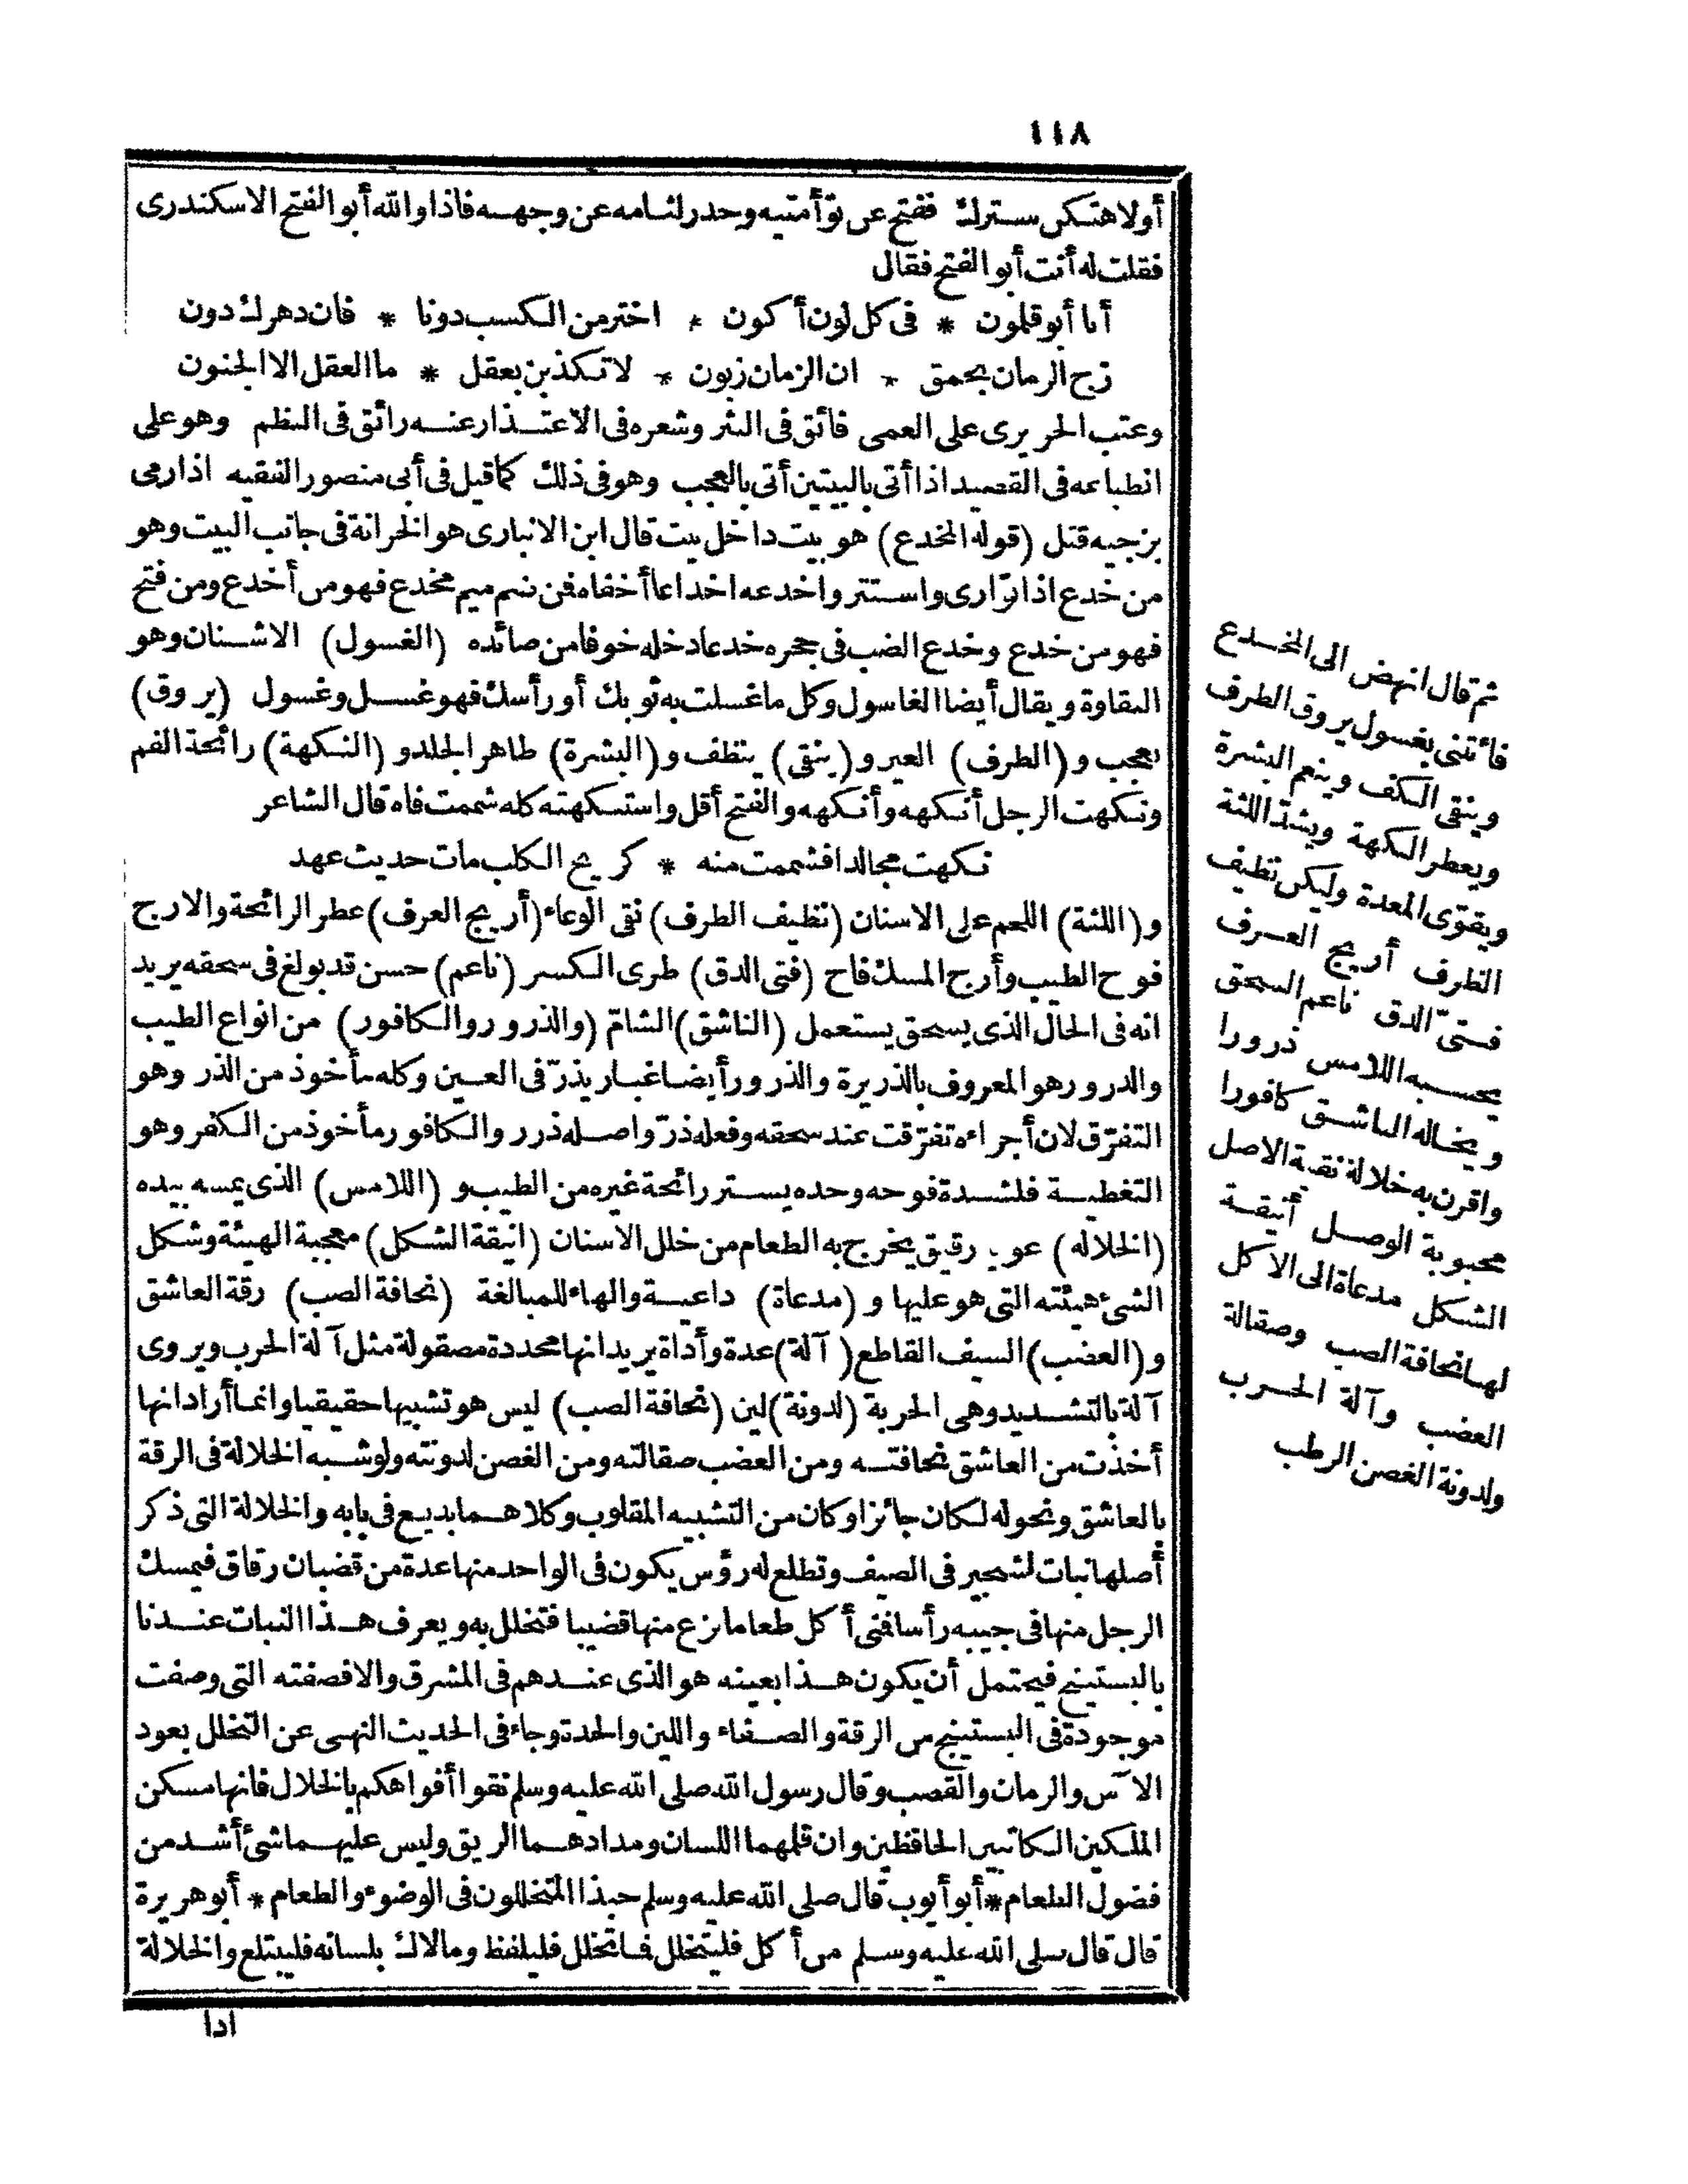 ١١٨
أولاهتكن سترك ففتح عن توأمتيه وحدر لثامه عن وجهه فاذا والله أبو الفتح الاسكندرى
فقلت له أنت أبو الفتح فقال
أنا أبو قلمون * فى كل لون أكون * اختر من الكسب دونا * فان دهرك دون
زج الزمان بحمق * ان الزمان زبون * لا تكذبن بعقل * ما العقل الا الجنون
وعتب الحريرى على العمى فائق فى النثر وشعره فى الاعتذار عنه رائق فى النظم وهو على
انطباعه فى القصيد اذا أتى بالبيتين أتى بالعجب وهو فى ذلك كما قيل فى أبى منصور الفقيه اذا رمى
بزجيه قتل (قوله المخدع) هو بيت داخل بيت قال ابن الانبارى هو الخزانة فى جانب البيت وهو
من خدع اذا توارى واستتر واخدعه اخداعا أخفاه فمن ضم ميم مخدع فهو من أخدع ومن فتح
فهو من خدع وخدع الضب فى جحره خدعا دخله خوفا من صائده (الغسول) الاشنان وهو
النقاوة ويقال أيضا الغاسول وكل ما غسلت به ثوبك أو رأسك فهو غسل وغسول (يروق)
يعجب و(الطرف) العين و(ينقى) ينظف و(البشرة) ظاهر الجلد و(النكهة) رائحة الفم
ونكهت الرجل أنكهه وأنكهه والفتح أقل واستنكهته كله شممت فاه قال الشاعر
نكهت مجالدا فشممت منه * كريح الكلب مات حديث عهد
و(اللثة) اللحم على الاسنان (نظيف الظرف) نقى الوعاء (أريج العرف) عطر الرائحة والارج
فوح الطيب وأرج المسك فاح (فتى الدق) طرى الكسر (ناعم) حسن قد بولغ فى سحقه يريد
انه فى الحال الذى يسحق يستعمل (الناشق) الشامّ (والذرور والكافور) من انواع الطيب
والذرور هو المعروف بالذريرة والذرور أيضا غبار يذرّ فى العين وكله مأخوذ من الذر وهو
التفرّق لان أجزاءه تفرّقت عند سحقه وفعله ذرّ واصله ذرر والكافور مأخوذ من الكفر وهو
التغطية فلشدة فوحه وحده يستر رائحة غيره من الطيب و(اللامس) الذى يمسه بيده
(الخلاله) عود رقيق يخرج به الطعام من خلل الاسنان (انيقة الشكل) معجبة الهيئة وشكل
الشئ هيئته التى هو عليها و (مدعاة) داعية والهاء للمبالغة (نحافة الصب) رقة العاشق
و(العضب) السيف القاطع (آلة) عدة وأداة يريد انها محددة مصقولة مثل آلة الحرب ويروى
آلة بالتشديد وهى الحربة (لدونة) لين (نحافة الصب) ليس هو تشبيها حقيقيا وانما أراد انها
أخذت من العاشق نحافته ومن العضب صقالته ومن الغصن لدونته ولو شبه الخلالة فى الرقة
بالعاشق ونحوله لكان جائزا وكان من التشبيه المقلوب وكلاهما بديع فى بابه والخلالة التى ذكر
أصلها نبات لشجير فى الصيف وتطلع له رؤس يكون فى الواحد منها عدة من قضبان رقاق فيمسك
الرجل منها فى جيبه رأسا فتى أكل طعاما نزع منها قضيبا فتخلل به ويعرف هذا النبات عندنا
بالبستينج فيحتمل أن يكون هذا بعينه هو الذى عندهم فى المشرق والا فصفته التى وصفت
موجودة فى البستينج من الرقة والصفاء واللين والحدة وجاء فى الحديث النهى عن التخلل بعود
الآس والرمان والقصب وقال رسول الله صلى الله عليه وسلم نقوا أفواهكم بالخلال فانها مسكن
الملكين الكاتبين الحافظين وان قلمهما اللسان ومدادهما الريق وليس عليهما شئ أشد من
فضول الطعام * أبو أيوب قال صلى الله عليه وسلم حبذا المتخللون فى الوضوء والطعام * أبو هريرة
قال قال صلى الله عليه وسلم من أكل فليتخلل فما تخلل فليلفظ وما لاك بلسانه فليبتلع والخلالة
اذا
ثم قال انهض الى المخدع
فأتنى بغسول يروق الطرف
وينقى الكف وينعم البشرة
ويعطر النكهة ويشدّ اللثة
ويقوّى المعدة وليكن نظيف
الظرف أريج العرف
فتىّ الدق ناعم السحق
يحسبه اللامس ذرورا
ويخاله الناشق كافورا
واقرن به خلالة نقية الاصل
محبوبة الوصل أنيقة
الشكل مدعاة الى الاكل
لها نحافة الصب وصقالة
العضب وآلة الحرب
ولدونة الغصن الرطب